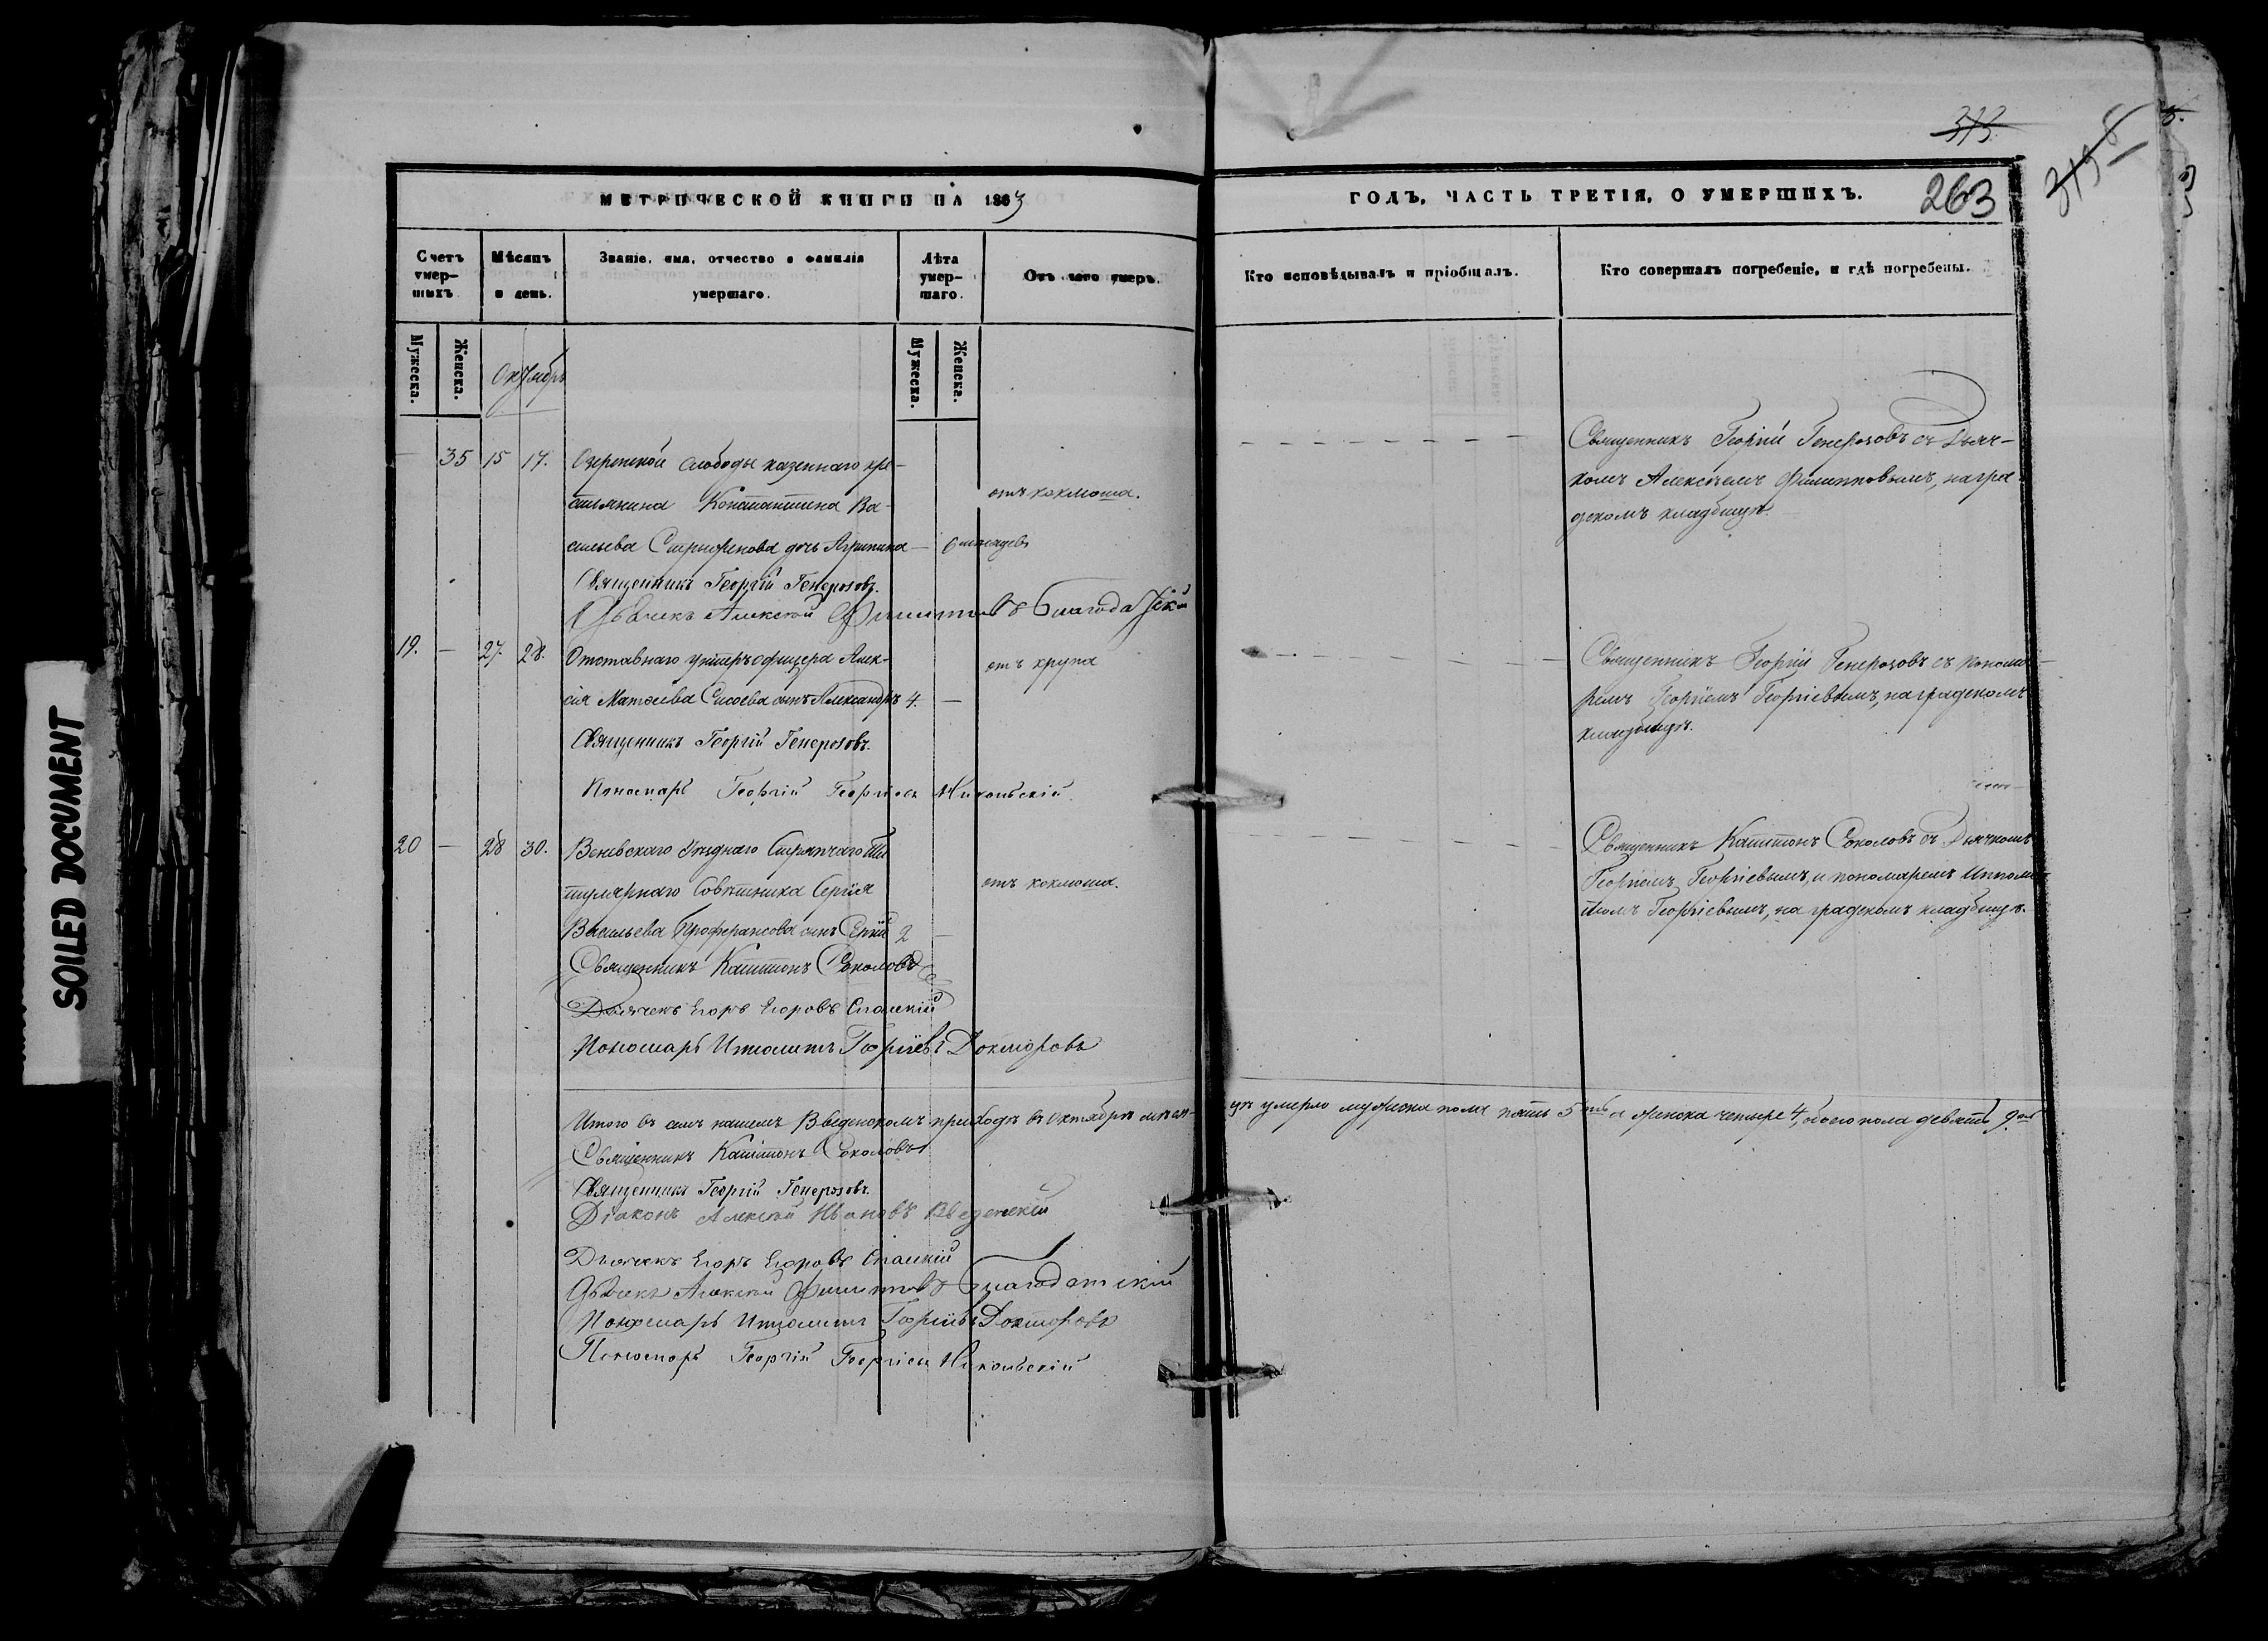 SOILED DOCUMENT
373.
263
МЕТРИЧЕСКОЙ КНИГИ НА 1863
ГОДЪ, ЧАСТЬ ТРЕТІЯ, О УМЕРШИХЪ.
Счетъ умер-шихъ.
Мѣсяцъ и день.
Званіе, имя, отчество и фамилія умершаго.
Лѣта умер-шаго.
Отъ чего умеръ.
Кто исповѣдывалъ и пріобщалъ.
Кто совершалъ погребеніе, и гдѣ погребены.
Мужеска.
Женска.
Мужеска.
Женска.
Октябрь
— 35 15 17. Озеренской слободы казеннаго кре-
стьянина Константина Ва-
сильева дочь Агрипина —
отъ коклюша.
Священникъ Георгій Генерозовъ.
Дьячекъ Алексѣй Филиповъ Благодатскій
Священникъ Георгій Генерозовъ съ Дьяч-
комъ Алексѣемъ Филипповымъ, на гра-
дскомъ кладбищѣ.
19. — 27. 28. Отставнаго унтеръ офицера Алек-
сія Матвѣева Сысоева сынъ Александръ 4. —
отъ крупа
Священникъ Георгій Генерозовъ.
Пономарь Георгій Георгіевъ Никольскій
Священникъ Георгій Генерозовъ съ понома-
ремъ Георгіемъ Георгіевымъ, на градскомъ
кладбищѣ.
20 — 28 30. Веневскаго Уѣзднаго Стряпчаго Ти-
тулярнаго Совѣтника Сергія
Васильева Преферансова сынъ Сергій 2 —
отъ коклюша.
Священникъ Капитонъ Соколовъ
Дьячекъ Егоръ Егоровъ Спаскій
Пономарь Ипполитъ Георгіевъ Докторовъ
Священникъ Капитонъ Соколовъ съ Дьячкомъ
Георгіемъ Георгіевымъ, и пономаремъ Ипполи-
томъ Георгіевымъ, на градскомъ кладбищѣ.
Итого въ семъ нашемъ Введенскомъ приходѣ въ Октябрѣ мѣся-
цѣ умерло мужеска пола пять 5ть а женска четыре 4, обоего пола девять 9ть
Священникъ Капитонъ Соколовъ
Священникъ Георгій Генерозовъ.
Діаконъ Алексѣй Ивановъ Введенскій
Дьячекъ Егоръ Егоровъ Спаскій
Дьячекъ Алексѣй Филиповъ Благодатскій
Пономарь Ипполитъ Георгіевъ Докторовъ
Пономарь Георгій Георгіевъ Никольскій